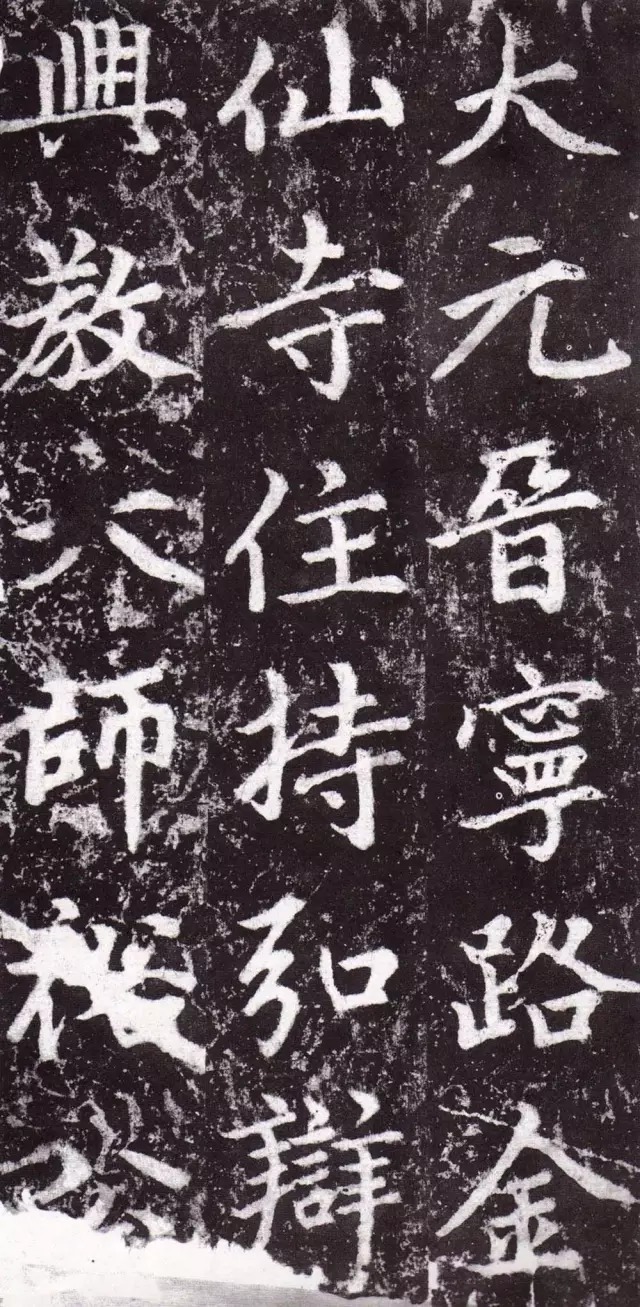 大元晉寧路金
仙寺住持弘辯
興教大師裕公